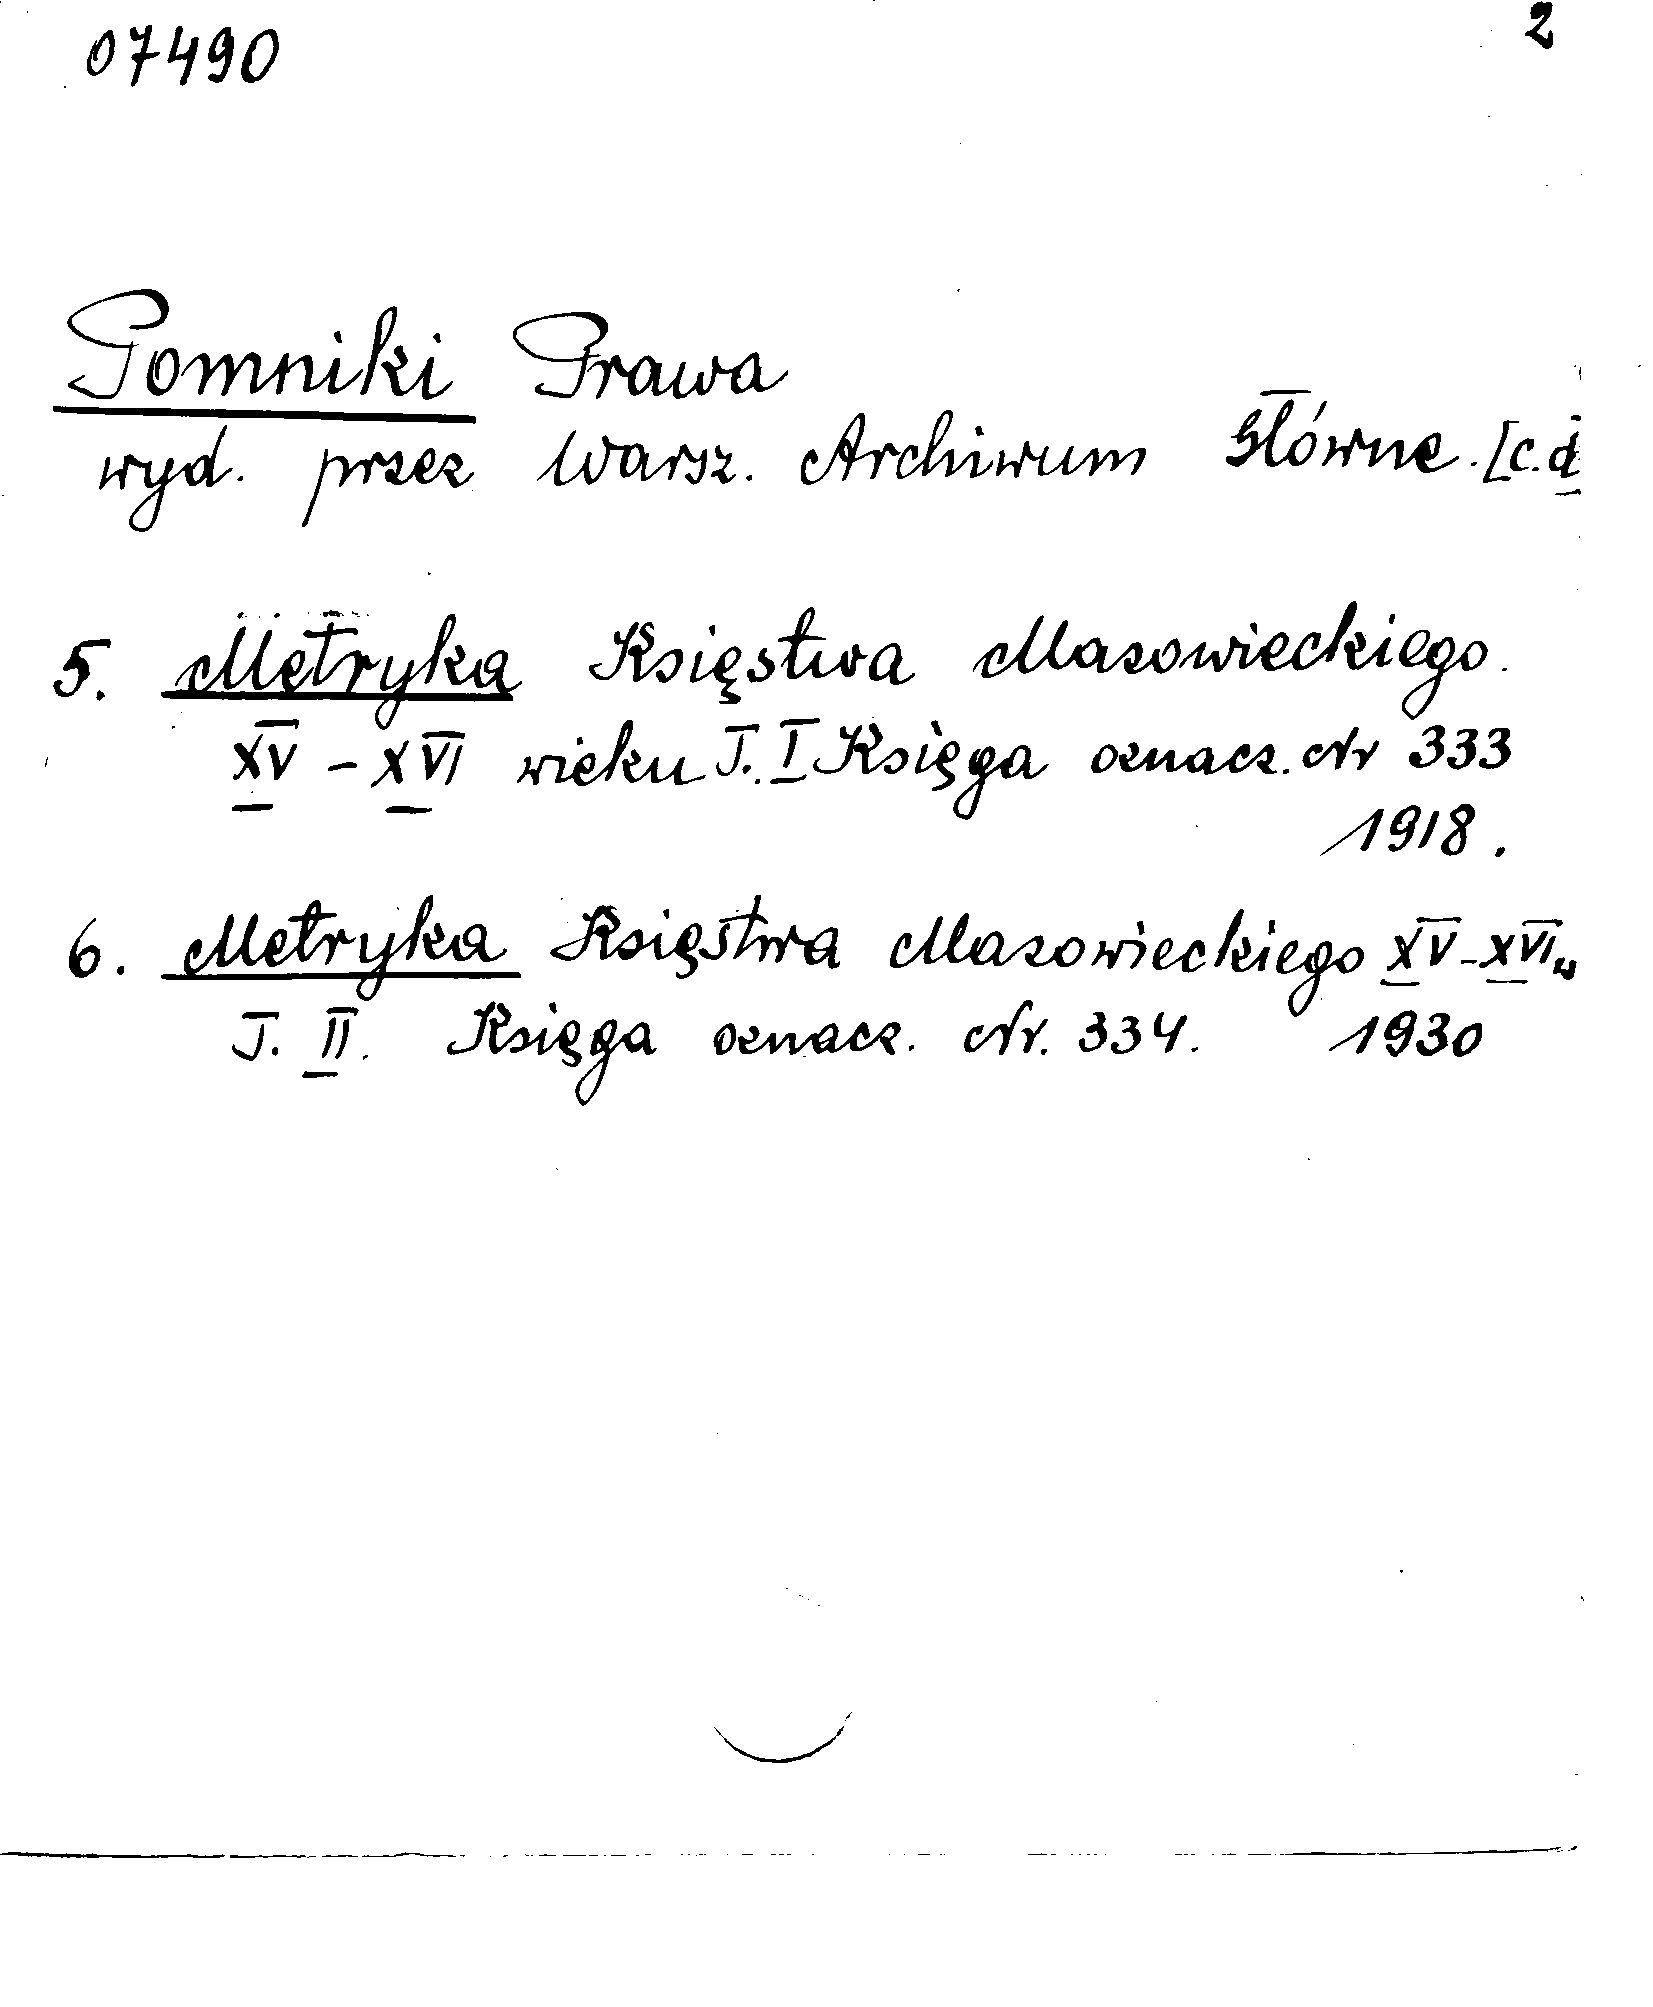 07490
2
Pomniki Prawa
wyd. przez Warsz. Archiwum Główne. [c.d
5. Metryka Księstwa Mazowieckiego.
XV - XVI wieku T. I Księga oznacz. Nr 333
1918.
6. Metryka Księstwa Mazowieckiego XV-XVI w
T. II. Księga oznacz. Nr. 334. 1930